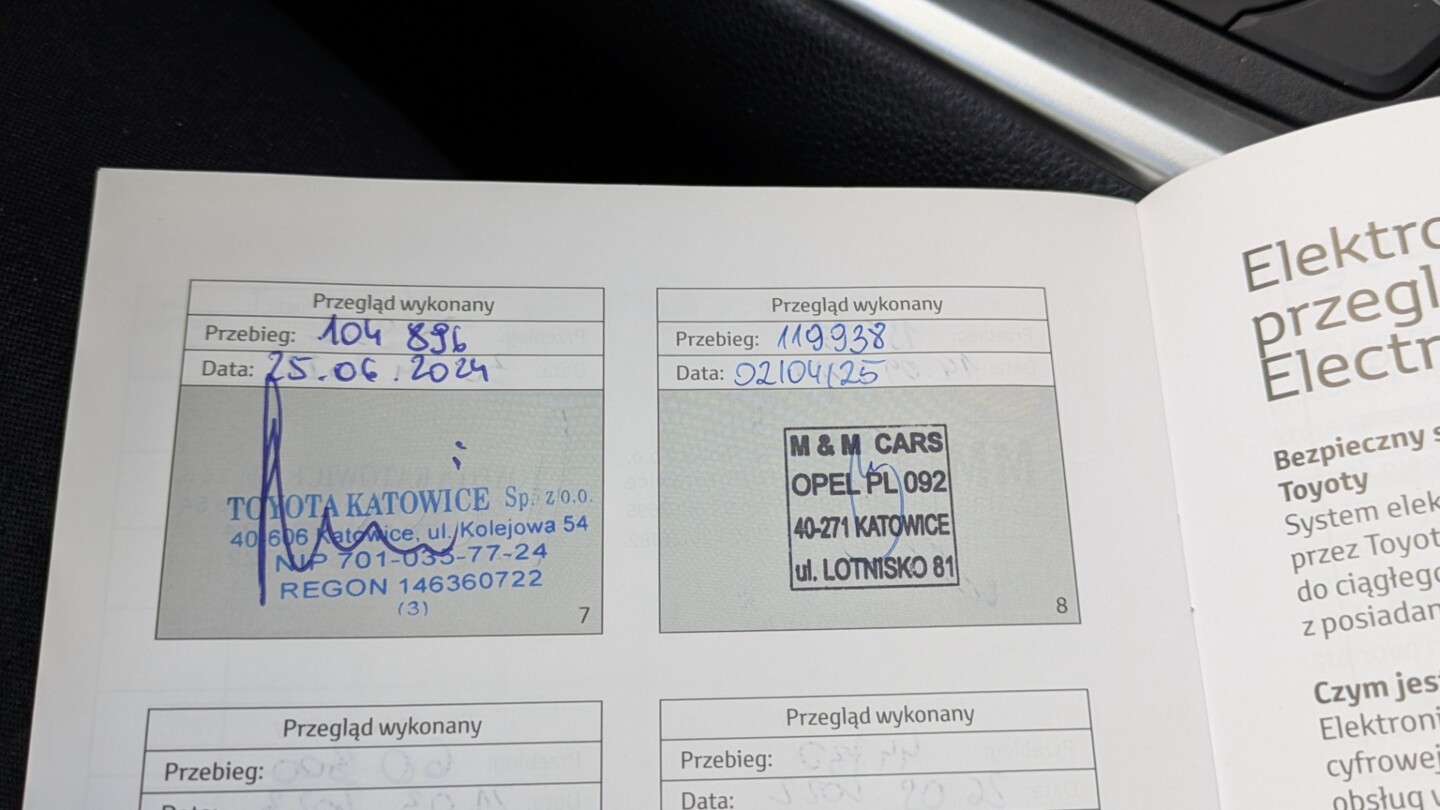 Przegląd wykonany
Przebieg: 104 896
Data: 25.06.2024
TOYOTA KATOWICE Sp. z o.o.
40-606 Katowice, ul. Kolejowa 54
NIP 701-035-77-24
REGON 146360722
(3)
7
Przegląd wykonany
Przebieg: 119938
Data: 02/04/25
M & M CARS
OPEL PL 092
40-271 KATOWICE
ul. LOTNISKO 81
8
Przegląd wykonany
Przebieg:
Data:
Przegląd wykonany
Przebieg:
Data:
Elektro
przegl
Electr
Bezpieczny s
Toyoty
System elek
przez Toyot
do ciągłego
z posiadan
Czym jest
Elektroni
cyfrowej
obsług w